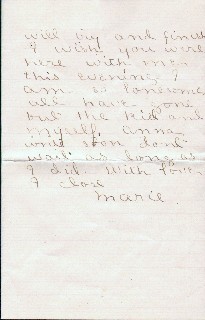 will try and finish
I wish you were
here with me
this evening I
am so lonesome
all have gone
but the kid and
myself. Anna
write soon dont
wait as long as
I did. With love
I close
Marie